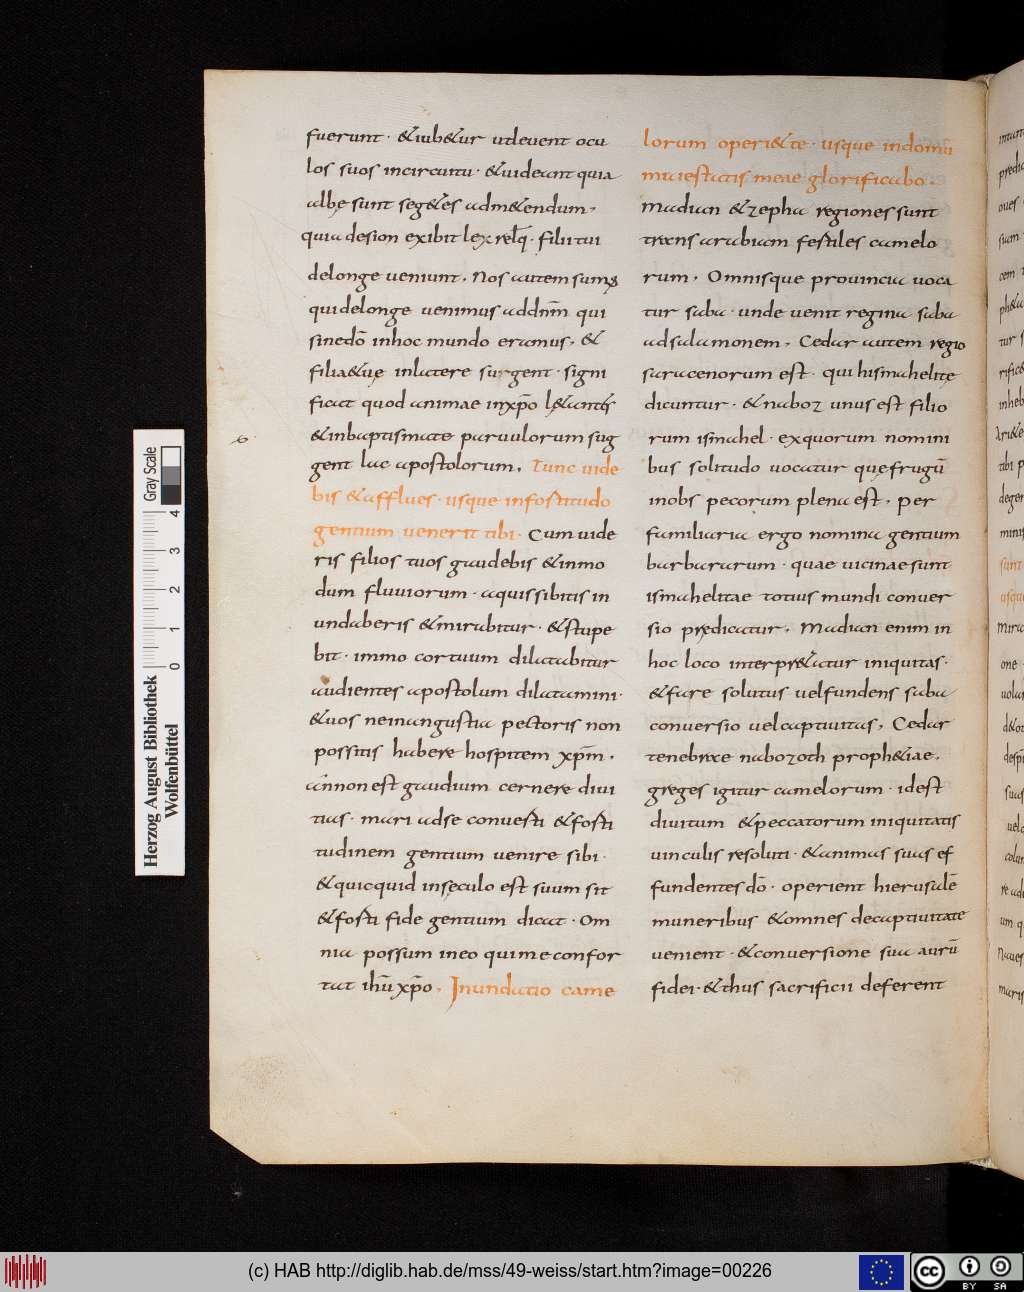 fuerunt · &iub&ur utleuent ocu
los suos incircuitu · &uideant quia
albę sunt seg&es adm&endum ·
quia desion exibit lex relq̄ · filii tui
delonge ueniunt . Nos autem sumus
qui delonge uenimus addnm̄ qui
sinedō inhoc mundo eramus . &
filia&uę inlatere surgent · signi
ficat quod animae inxp̄o l&antes
&inbaptismate paruulorum sug
gent lac apostolorum . Tunc uide
bis &afflues · usque infostitudo
gentium uenerit tibi · Cum uide
ris filios tuos gaudebis &inmo
dum fluuiorum · aquissibitis in
undaberis &mirabitur · &stupe
bit · immo cortuum dilatabitur
audientes apostolum dilatamini ·
&uos neinangustia pectoris non
possitis habere hospitem xpm̄ .
annon est gaudium cernere diui
tias · mari adse conuesti &fosti
tudinem gentium uenire sibi ·
&quicquid insęculo est suum sit
&fosti fide gentium dicat · Om
nia possum ineo quimeconfor
tat ihū xp̄o . Inundatio came
lorum operi&te · usque indomū
maiestatis meae glorificabo .
Madian &zepha regiones sunt
trans arabiam festiles camelo
rum . Omnisque prouincia uoca
tur saba · unde uenit regina saba
adsalamonem . Cedar autem regio
saracenorum est · qui hismahelitę
dicuntur · &naboz unus est filio
rum ismahel · exquorum nomini
bus solitudo uocatur quę frugū
inobs pecorum plena est . per
familiaria ergo nomina gentium
barbararum · quae uicinae sunt
ismahelitae totius mundi conuer
sio prędicatur . Madian enim in
hoc loco interpr&atur iniquitas ·
&fare solutus uelfundens saba
conuersio uelcaptiuitas . Cedar
tenebrae nabozoth proph&iae .
greges igitur camelorum · idest
diuitum &peccatorum iniquitatis
uinculis resoluti · &animas suas ef
fundentes dō · operient hierusalē
muneribus &omnes decaptiuitate
uenient · &conuersione sua aurū
fidei · &thus sacrificii deferent
Herzog August Bibliothek
Wolfenbüttel
Gray Scale
0 1 2 3 4
(c) HAB http://diglib.hab.de/mss/49-weiss/start.htm?image=00226
cc
BY SA